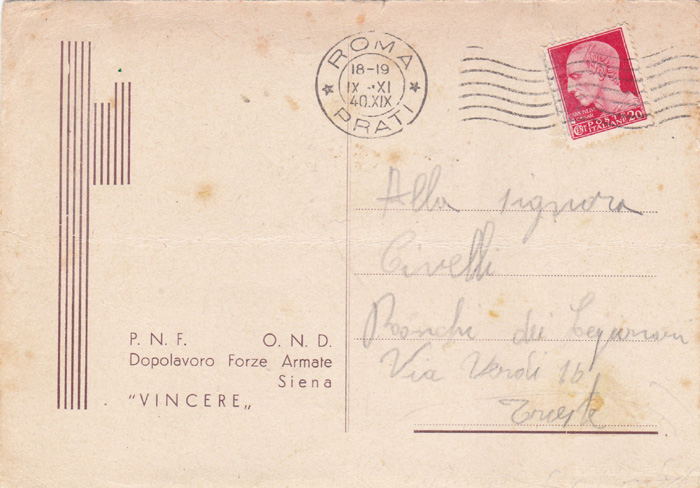 ROMA
18-19
IX - XI
40.XIX
PRATI
POSTE
CENT ITALIANE 20
P. N. F. O. N. D.
Dopolavoro Forze Armate
Siena
"VINCERE„
Alla signora
Civelli
Ronchi dei Legionari
Via Verdi 16
Trieste